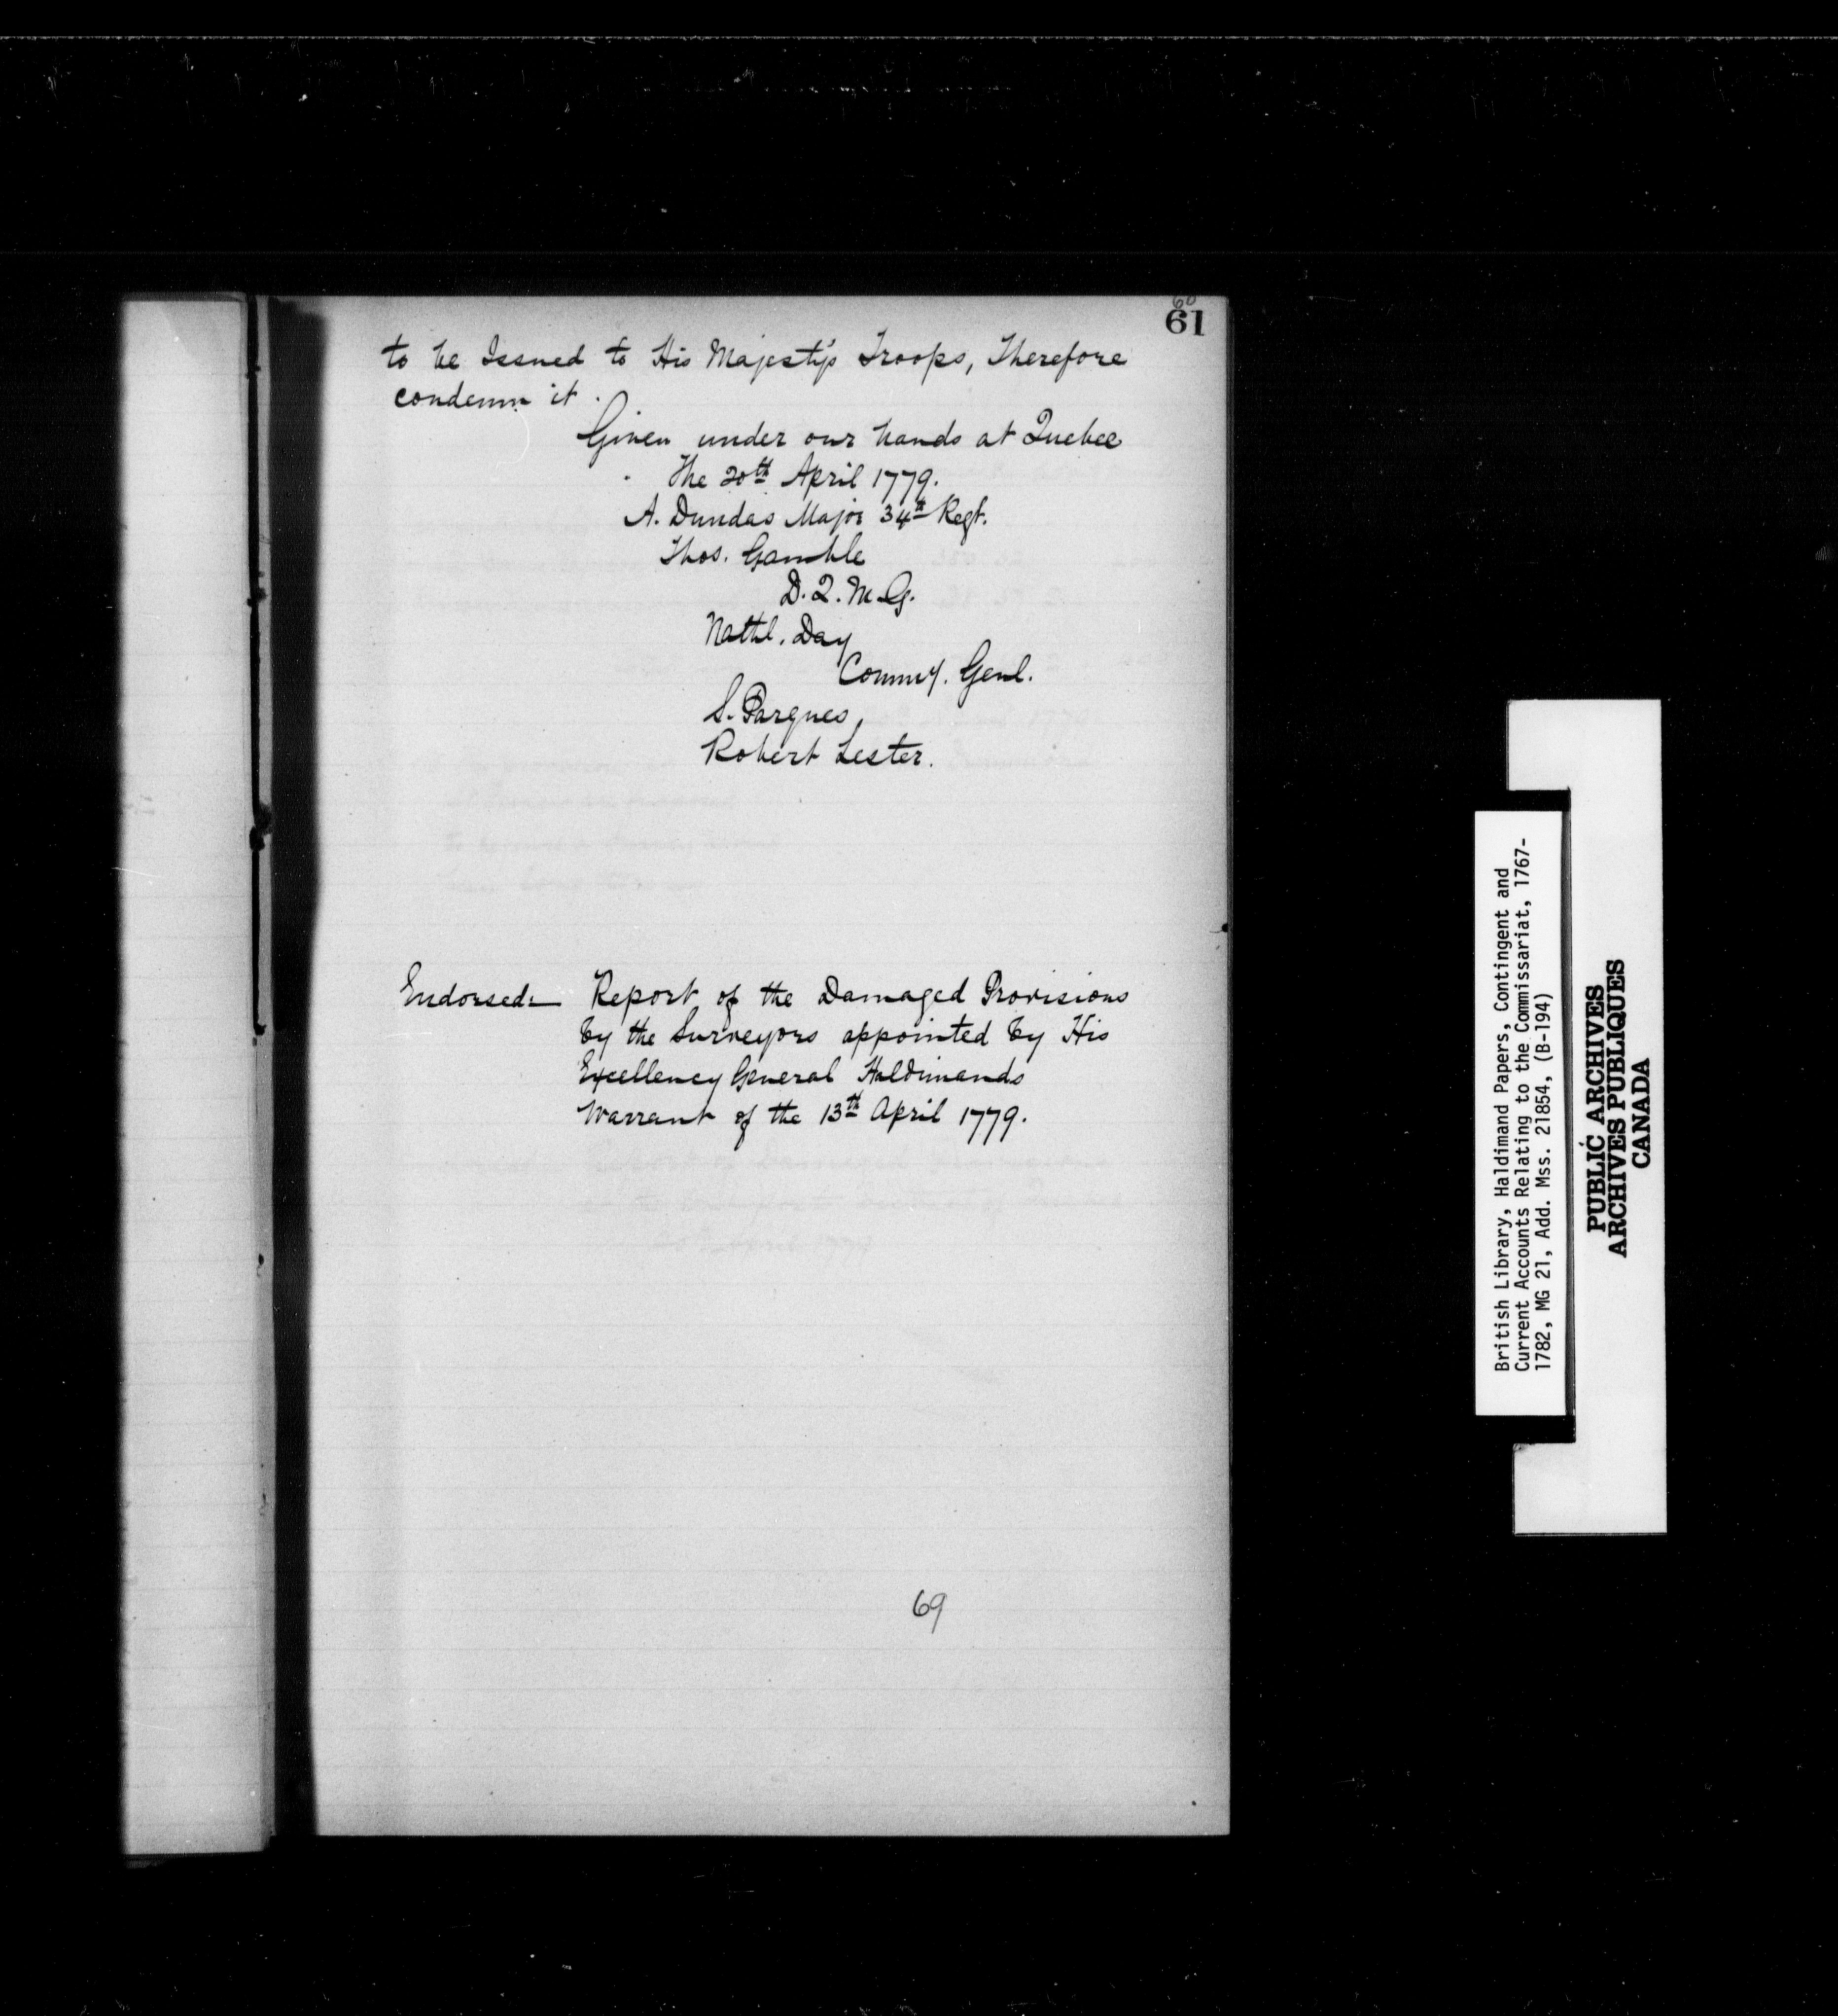 60
61
to be Issued to His Majesty's Troops, Therefore
condemn it.
Given under our hands at Quebec
The 20th April 1779.
A. Dundas Major 34th Regt.
Thos. Gamble
D.Q.M.G.
Nathl. Day
Commy. Genl.
S. Parques,
Robert Lester.
Endorsed:— Report of the Damaged Provisions
by the Surveyors appointed by His
Excellency General Haldimands
Warrant of the 13th April 1779.
69
British Library, Haldimand Papers, Contingent and
Current Accounts Relating to the Commissariat, 1767-
1782, MG 21, Add. Mss. 21854, (B-194)
PUBLIC ARCHIVES
ARCHIVES PUBLIQUES
CANADA